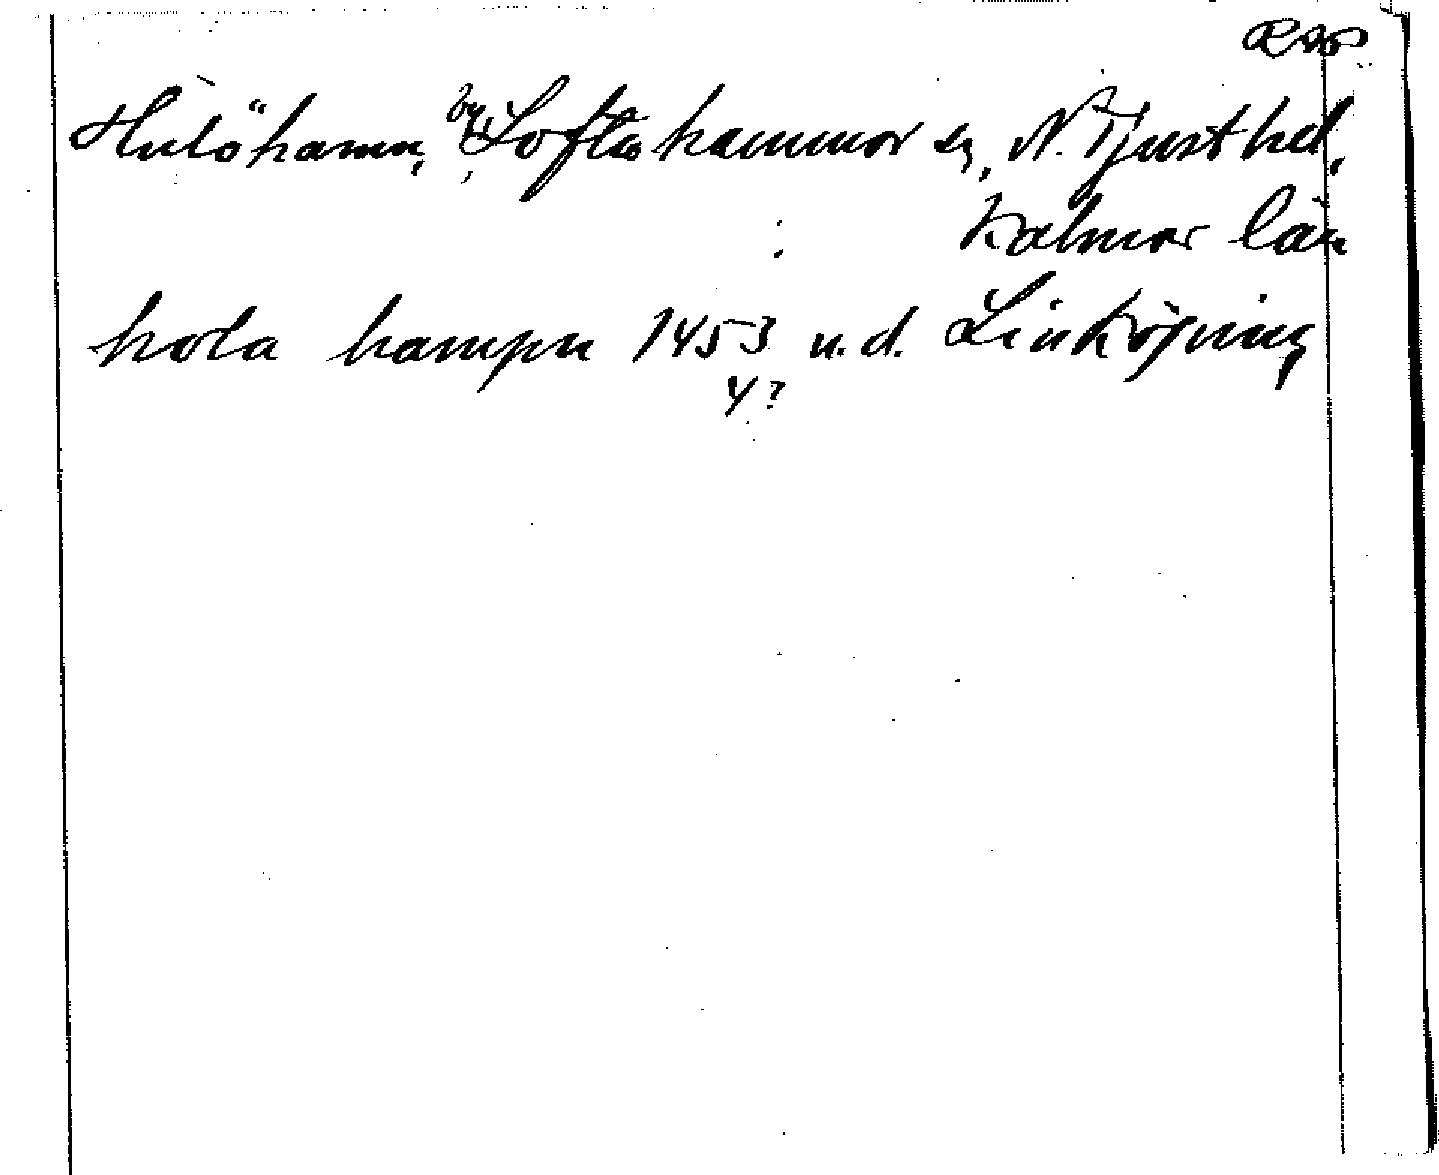 Hulöhamn, by, Loftahammar sn, N. Tjust hd,
Kalmar län
hola hampn 1453 u.d. Linköping
4?